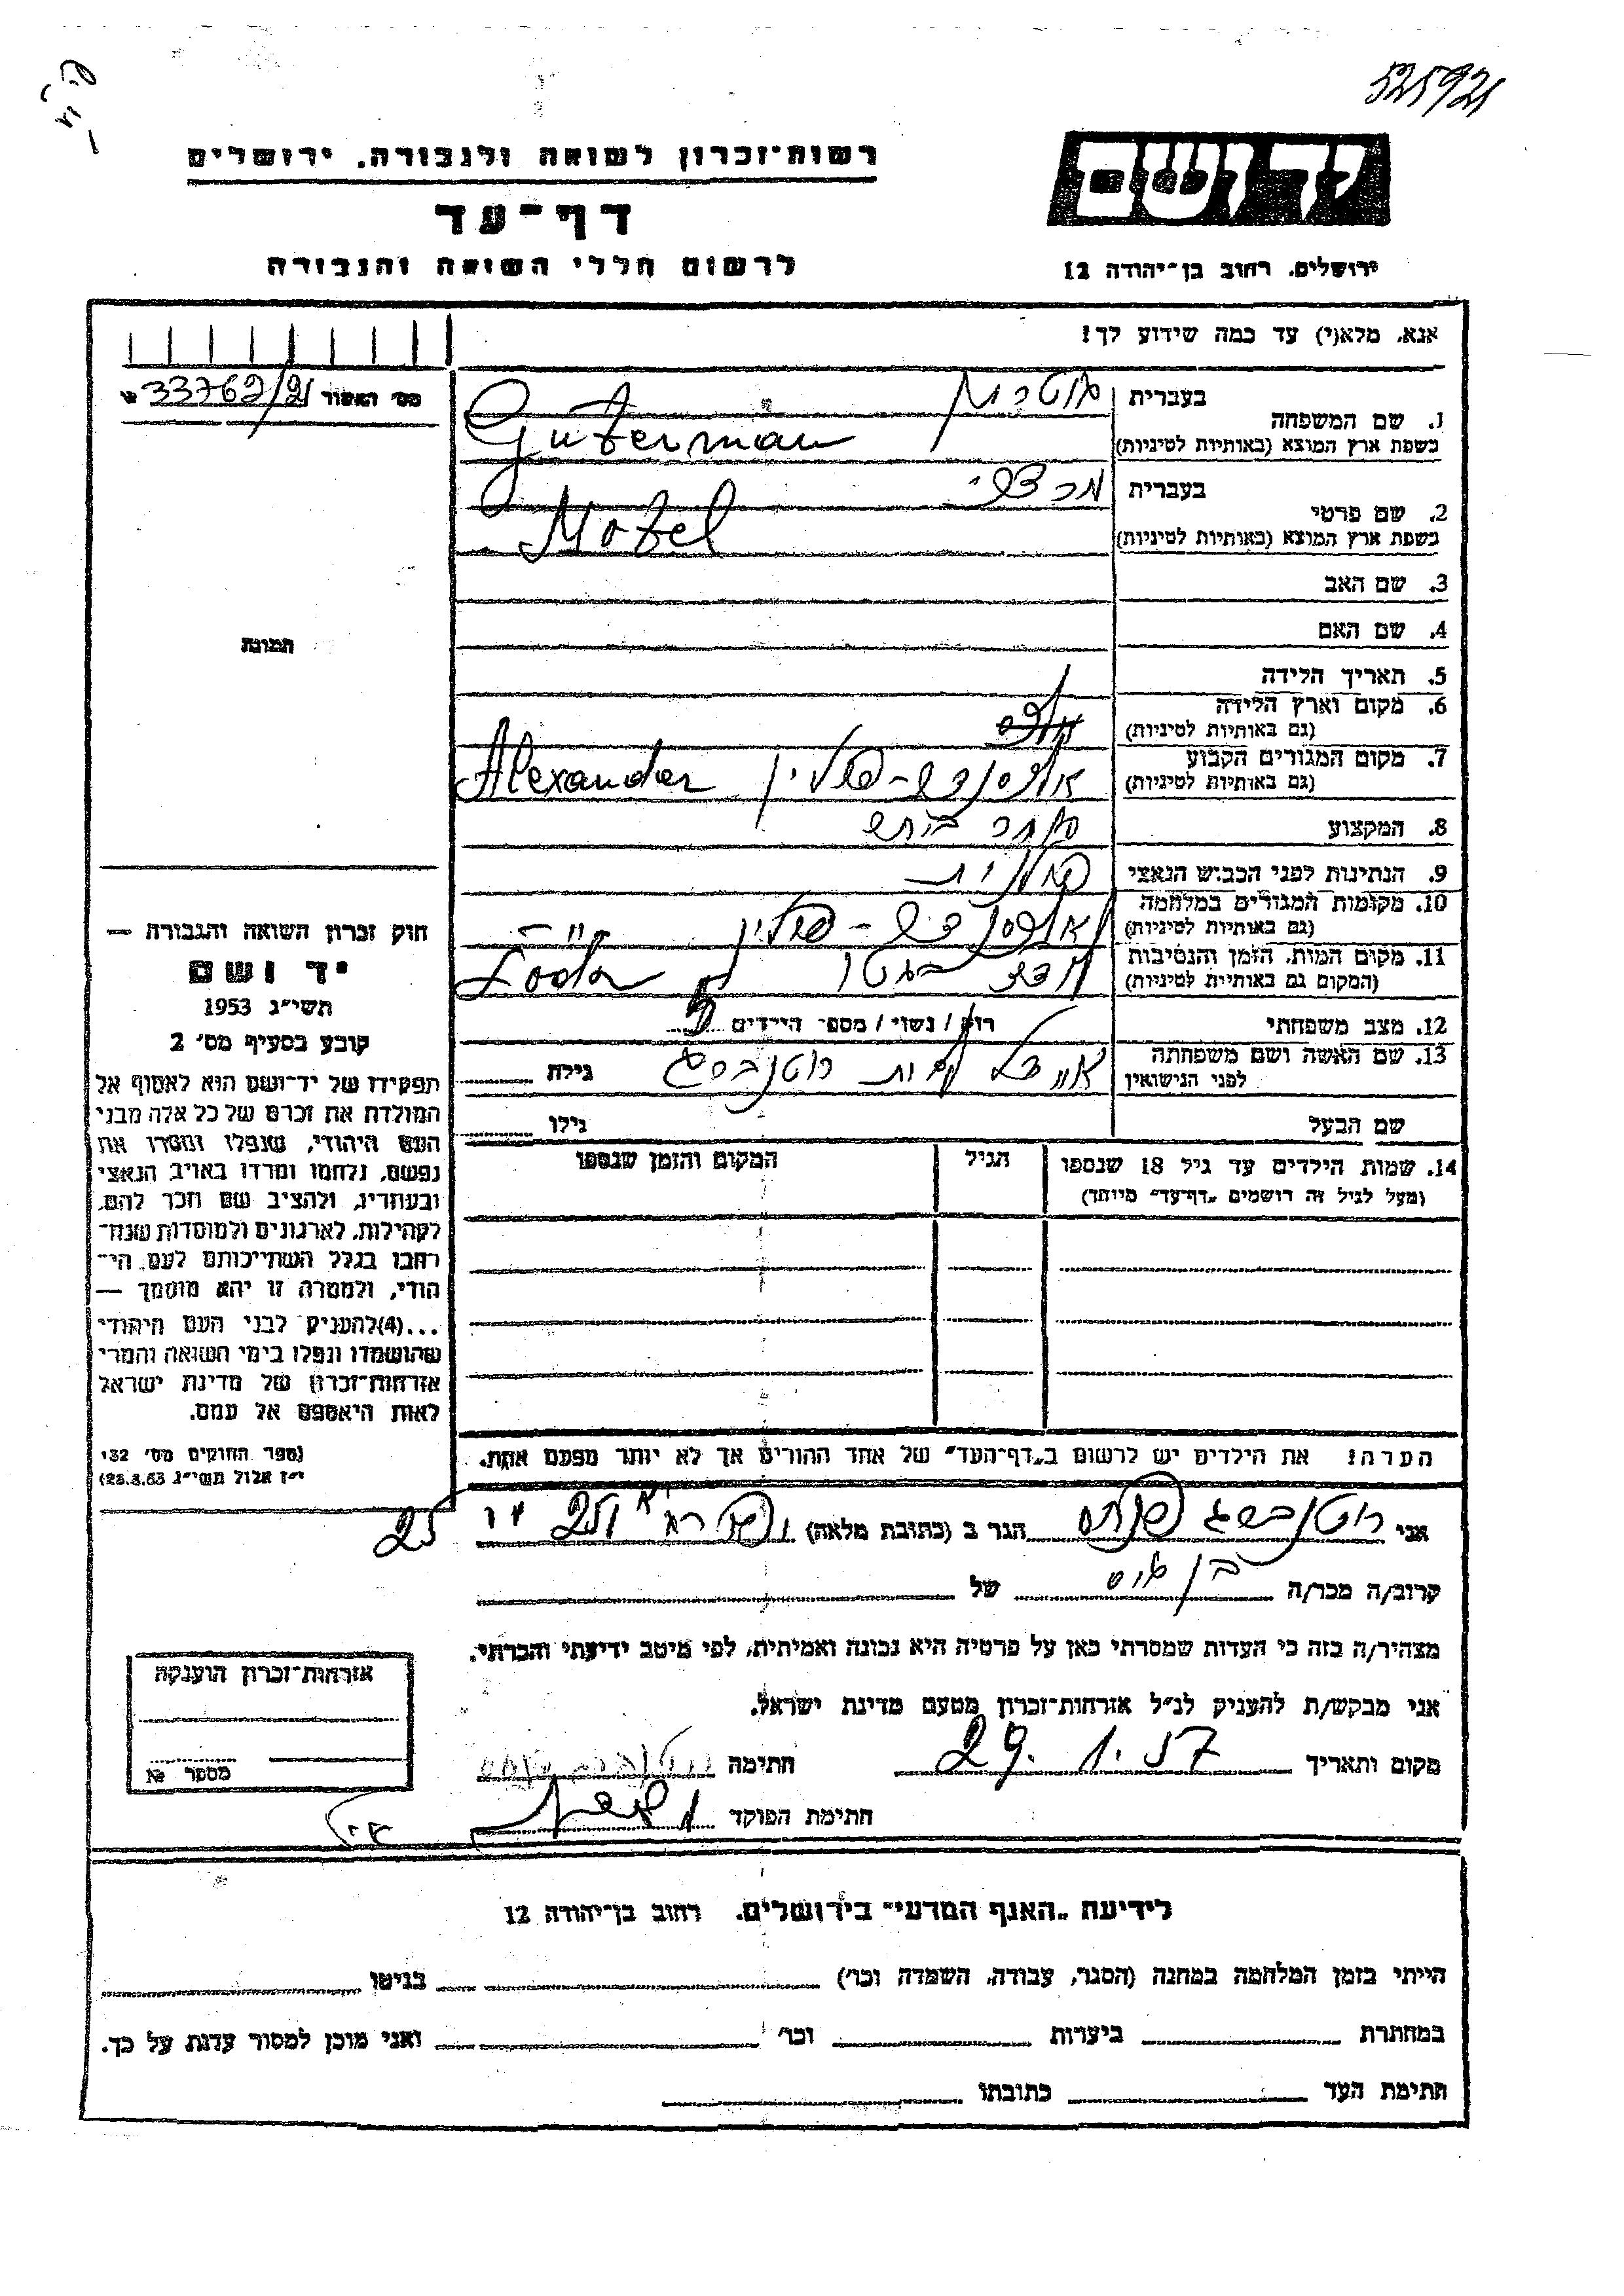 525921
רשות־זכרון לשואה ולגבורה. ירושלים
דף־עד
לרשום חללי השואה והגבורה
יד ושם
ירושלים. רחוב בן־יהודה 12
אנא. מלא(י) עד כמה שידוע לך!
מס׳ האשור 33762/21
1. שם המשפחה
בעברית גוטרמן
בשפת ארץ המוצא (באותיות לטיניות) Guterman
2. שם פרטי
בעברית מרדכי
בשפת ארץ המוצא (באותיות לטיניות) Motel
3. שם האב
4. שם האם
5. תאריך הלידה
6. מקום וארץ הלידה
(גם באותיות לטיניות)
7. מקום המגורים הקבוע
(גם באותיות לטיניות) פולין Alexander
8. המקצוע סוחר
9. הנתינות לפני הכבוש הנאצי פולנית
10. מקומות המגורים במלחמה
(גם באותיות לטיניות) פולין
11. מקום המות. הזמן והנסיבות
(המקום גם באותיות לטיניות) לודז׳ בגטו
12. מצב משפחתי רוק / נשוי / מספר הילדים 5
13. שם האשה ושם משפחתה
לפני הנישואין לבית רוטנברג גילה
שם הבעל גילו
14. שמות הילדים עד גיל 18 שנספו
(מעל לגיל זה רושמים „דף־עד״ מיוחד)
הגיל
המקום והזמן שנספו
הערה: את הילדים יש לרשום ב„דף־העד״ של אחד ההורים אך לא יותר מפעם אחת.
תמונה
חוק זכרון השואה והגבורה —
יד ושם
תשי״ג 1953
קובע בסעיף מס׳ 2
תפקידו של יד־ושם הוא לאסוף אל
המולדת את זכרם של כל אלה מבני
העם היהודי, שנפלו ומסרו את
נפשם, נלחמו ומרדו באויב הנאצי
ובעוזריו, ולהציב שם וזכר להם,
לקהילות, לארגונים ולמוסדות שנח־
רבו בגלל השתייכותם לעם הי־
הודי, ולמטרה זו יהא מוסמך —
...(4) להעניק לבני העם היהודי
שהושמדו ונפלו בימי השואה והמרי
אזרחות־זכרון של מדינת ישראל
לאות היאספם אל עמם.
(ספר החוקים מס׳ 132
י״ז אלול תשי״ג 28.8.53)
אני רוטנברג הגר ב (כתובת מלאה) 25
קרוב/ה מכר/ה בן דוד של
מצהיר/ה בזה כי העדות שמסרתי כאן על פרטיה היא נכונה ואמיתית, לפי מיטב ידיעתי והכרתי.
אני מבקש/ת להעניק לנ״ל אזרחות־זכרון מטעם מדינת ישראל.
מקום ותאריך 29.1.57 חתימה
חתימת הפוקד
אזרחות־זכרון הוענקה
מספר №
לידיעת „האגף המדעי״ בירושלים. רחוב בן־יהודה 12
הייתי בזמן המלחמה במחנה (הסגר, עבודה, השמדה וכו׳) בגיטו
במחתרת ביערות וכו׳ ואני מוכן למסור עדות על כך.
חתימת העד כתובתו